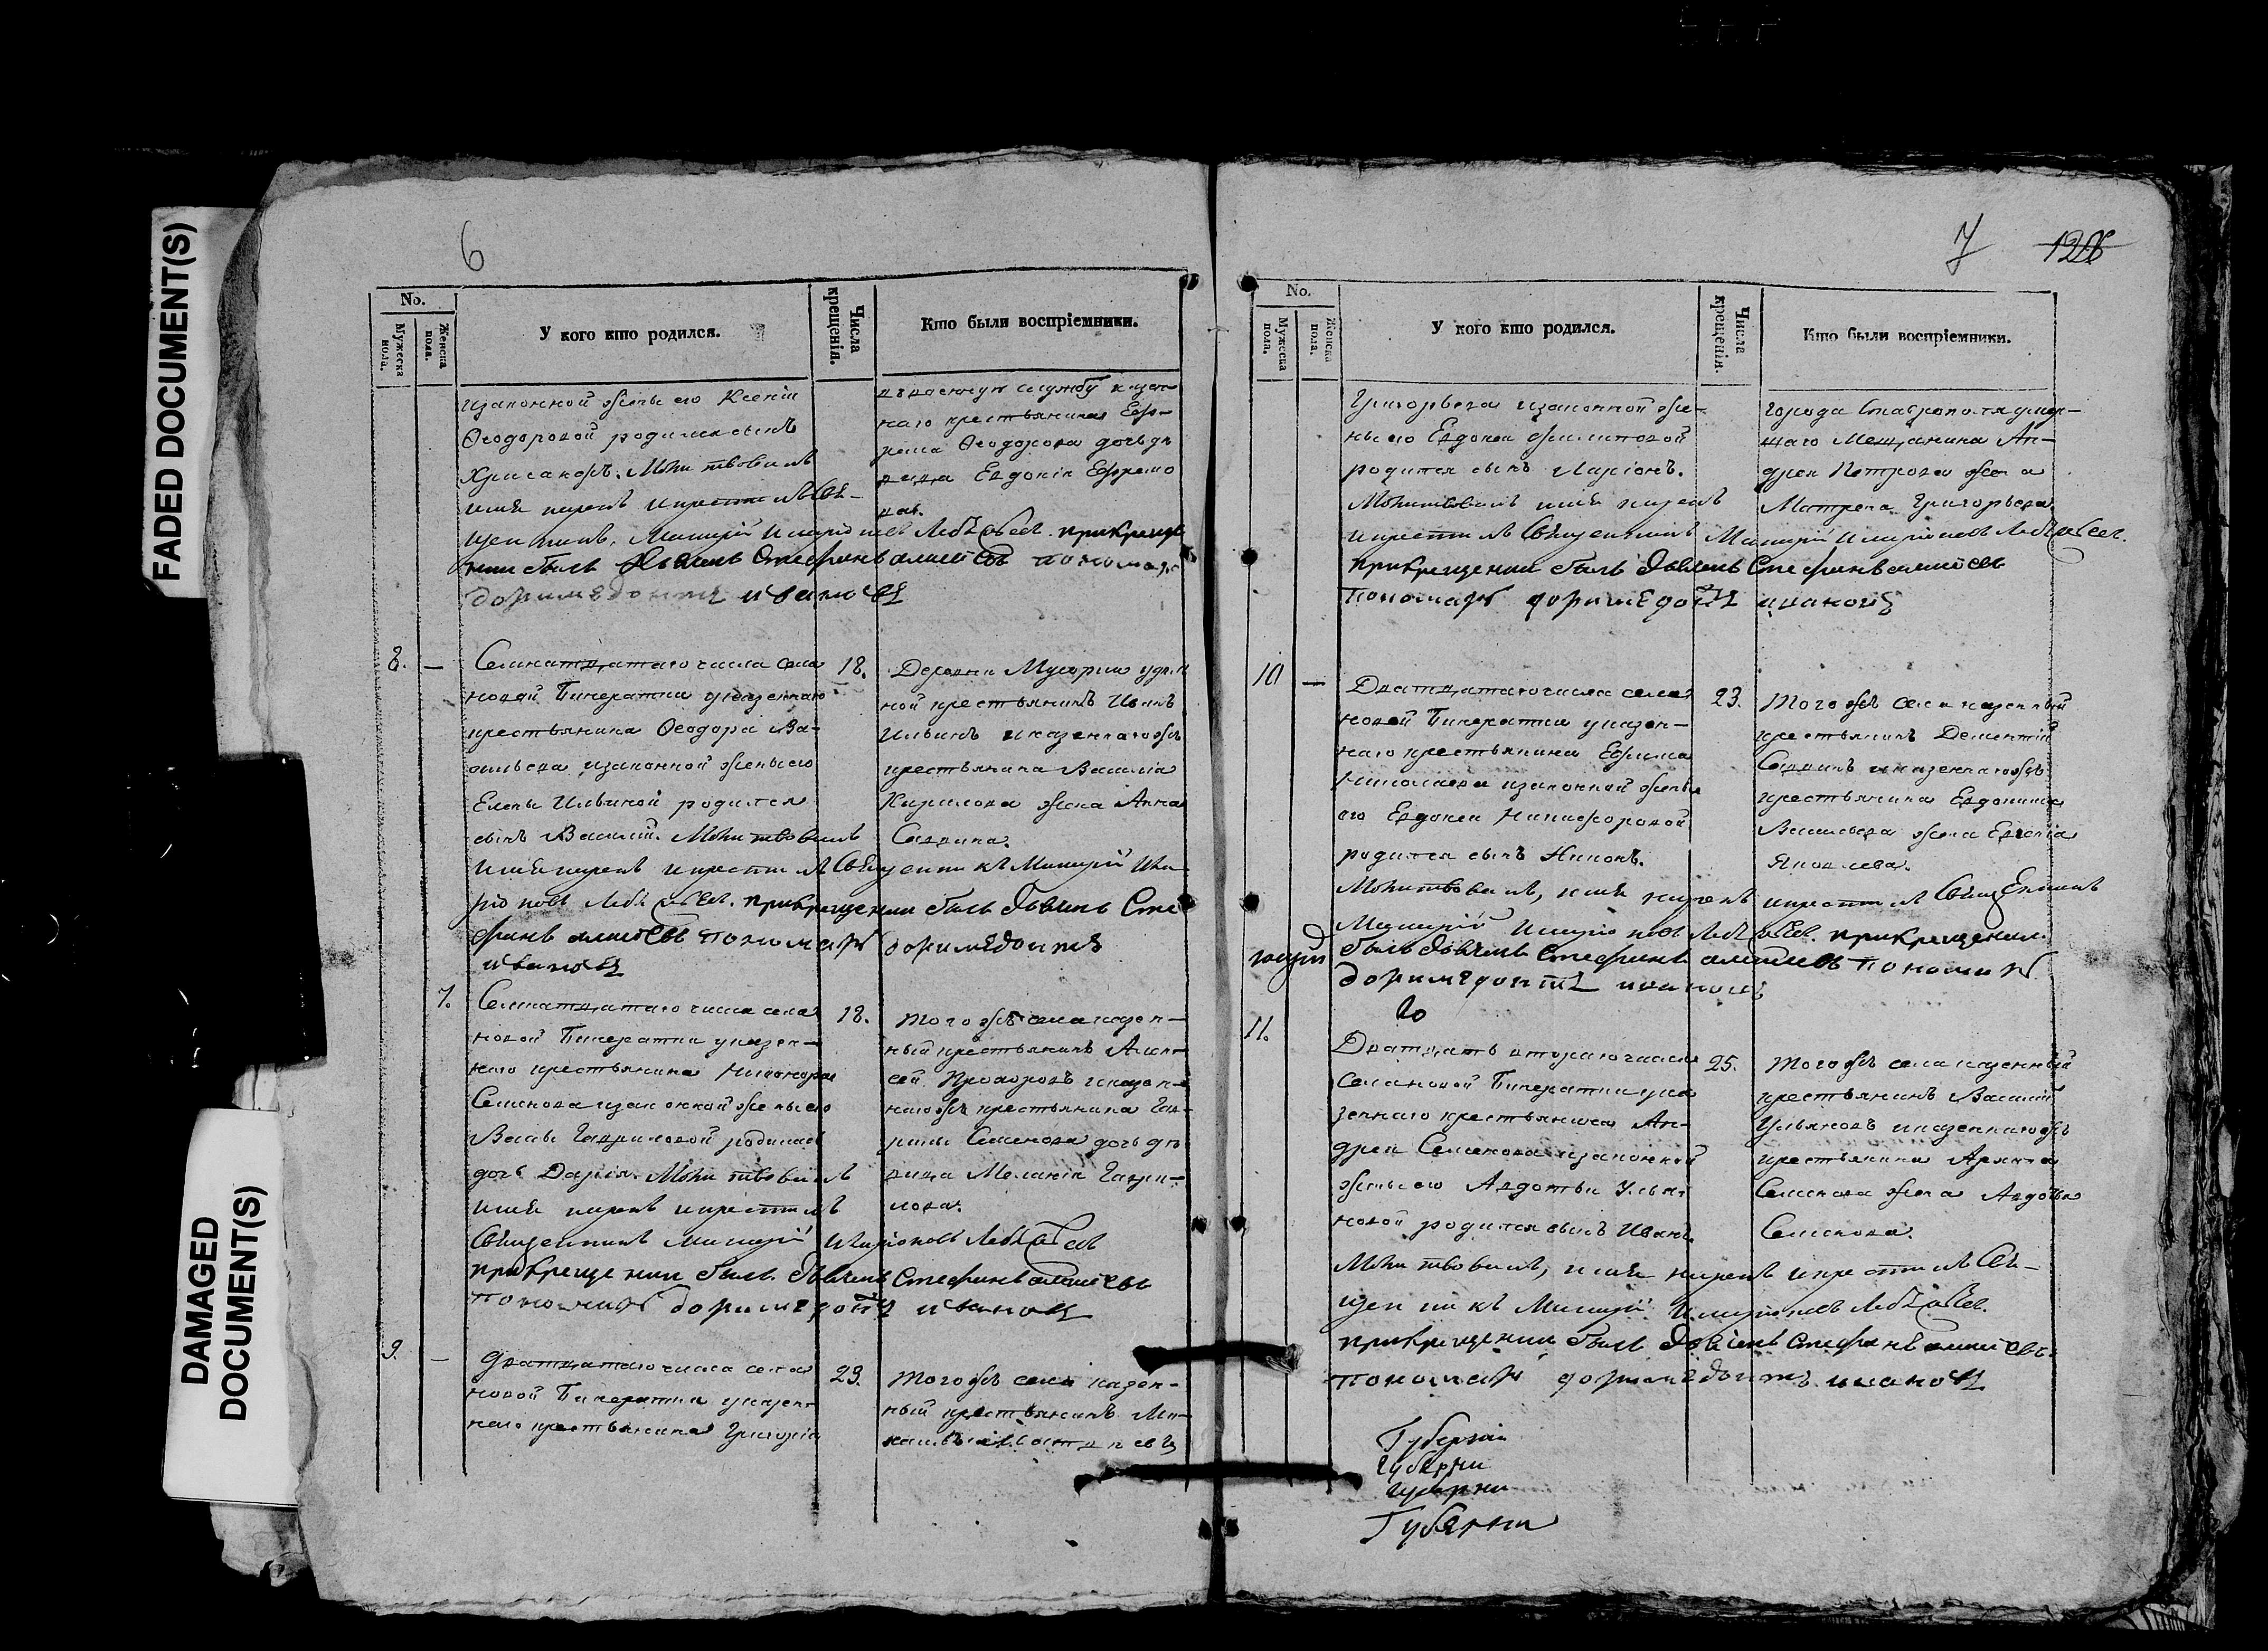 FADED DOCUMENT(S)
DAMAGED DOCUMENT(S)
6
No.
Мужеска пола.
Женска пола.
У кого кто родился.
Числа крещенія.
Кто были воспріемники.
изаконной жены его Ксеніи
Ѳеодоровой родился сынъ
Хрисанѳъ. Молитвовалъ
имя нарекъ и крестилъ Свя-
щенникъ,
прикреще
ніи былъ Дьячекъ Стефанъ пономарь
доримедонтъ ивановъ
службу казен-
наго крестьянина Еѳ-
рема Ѳеодорова дочь дѣ
вица Евдокія Ефремо
ва.
8.
—
Семнатцатаго числа села
новой Бинератки указеннаго
крестьянина Ѳеодора Ва-
сильева изаконной жены его
Елены Ильиной родился
сынъ Василій. Молитвовалъ
имя нарекъ и крестилъ Священникъ
прикрещеніи былъ Дьячекъ Сте
фанъ пономарь доримедонтъ
ивановъ
18.
Деревни
ной крестьянинъ Иванъ
Ильинъ и казеннагожъ
крестьянина Василіа
Кирилова жена Анна
Саввина.
7.
Семнатцатаго числа села
новой Бинератки указен-
наго крестьянина Никифора
Семенова изаконной жены его
Гавриловой родилась
дочь Дарія. Молитвовалъ
имя нарекъ и крестилъ
Священникъ
прикрещеніи былъ дьячекъ Стефанъ
пономарь доримедонтъ ивановъ
18.
Тогожъ села казен-
ный крестьянинъ Алек-
сей Прохоровъ и казен-
нагожъ крестьянина Гав-
рилы Семенова дочь дѣ
вица Меланія Гаври-
лова.
9.
—
Дватцатаго числа села
новой Бинератки указен-
наго крестьянина Григорія
23.
Тогожъ села казен-
ный крестьянинъ
7
126
No.
Мужеска пола.
Женска пола.
У кого кто родился.
Числа крещенія.
Кто были воспріемники.
Григорьева изаконной же-
ны его Евдокеи Филиповой
родился сынъ Ларіонъ.
Молитвовалъ имя нарекъ
и крестилъ Священникъ
прикрещеніи былъ Дьячекъ Стефанъ
пономарь доримедонтъ ивановъ
города Ставрополя
щаго Мещанина Ан-
дрея Петрова жена
Матрена Григорьева
10
—
Дватцатаго числа села
новой Бинератки указен-
наго крестьянина Ефима
Николаева изаконной жены
его Евдокеи Никифоровой
родился сынъ Никонъ.
Молитвовалъ, имя нарекъ и крестилъ Священникъ
прикрещеніи
былъ дьячекъ Стефанъ пономарь
доримедонтъ ивановъ
23.
Тогожъ села казенный
крестьянинъ Дементій
Саввинъ и казеннагожъ
крестьянина Евдокима
Васильева жена Евгенія
Яковлева.
11.
Дватцать втораго числа
села новой Бинератки ука
зеннаго крестьянина Ан-
дрея Семенова изаконной
жены его Авдотьи Улья
новой родился сынъ Иванъ.
Молитвовалъ, имя нарекъ и крестилъ Свя-
щенникъ
прикрещеніи былъ Дьячекъ Стефанъ
пономарь доримедонтъ ивановъ
25.
Тогожъ села казенный
крестьянинъ Василій
Ульяновъ и казеннагожъ
крестьянина
Семенова жена Авдотья
Семенова.
Губерніи
Губерни
губерни
Губерни